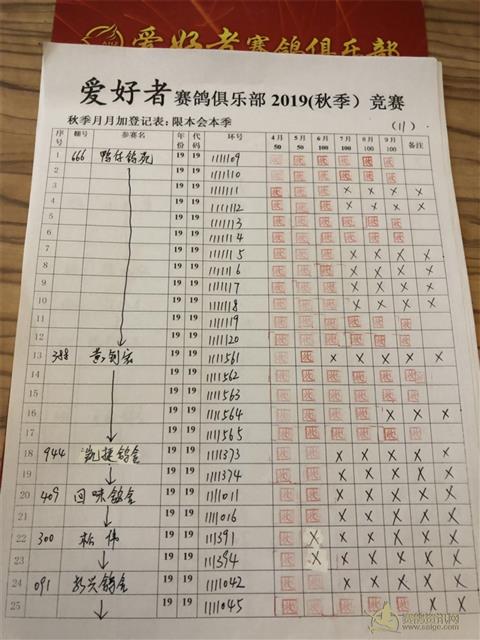 爱好者赛鸽俱乐部
爱好者赛鸽俱乐部2019(秋季）竞赛
秋季月月加登记表：限本会本季 （11）
序号 棚号 参赛名 年份 代码 环号 4月50 5月50 6月100 7月100 8月100 9月100 备注
1 666 鸭仔鸽苑 19 19 1111109
2 19 19 1111110
3 19 19 1111111 X X X X
4 19 19 1111112 X X X X
5 19 19 1111113
6 19 19 1111114
7 19 19 1111115 X X X X
8 19 19 1111116 X X X X
9 19 19 1111117 X X X X
10 19 19 1111118 X X X X
11 19 19 1111119
12 19 19 1111120
13 388 19 19 1111561 X X X X X
14 19 19 1111562
15 19 19 1111563
16 19 19 1111564 X X X
17 19 19 1111565
18 944 凯捷鸽舍 19 19 1111373 X X X X
19 19 19 1111374 X X X X
20 409 回味鸽舍 19 19 1111011 X X X X
21 19 19 1111016 X X X X
22 300 松伟 19 19 111391 X X X X X
23 19 19 111394 X X X X X
24 091 19 19 1111042 X X X X
25 19 19 1111045 X X
赛鸽资讯网
www.saige.com